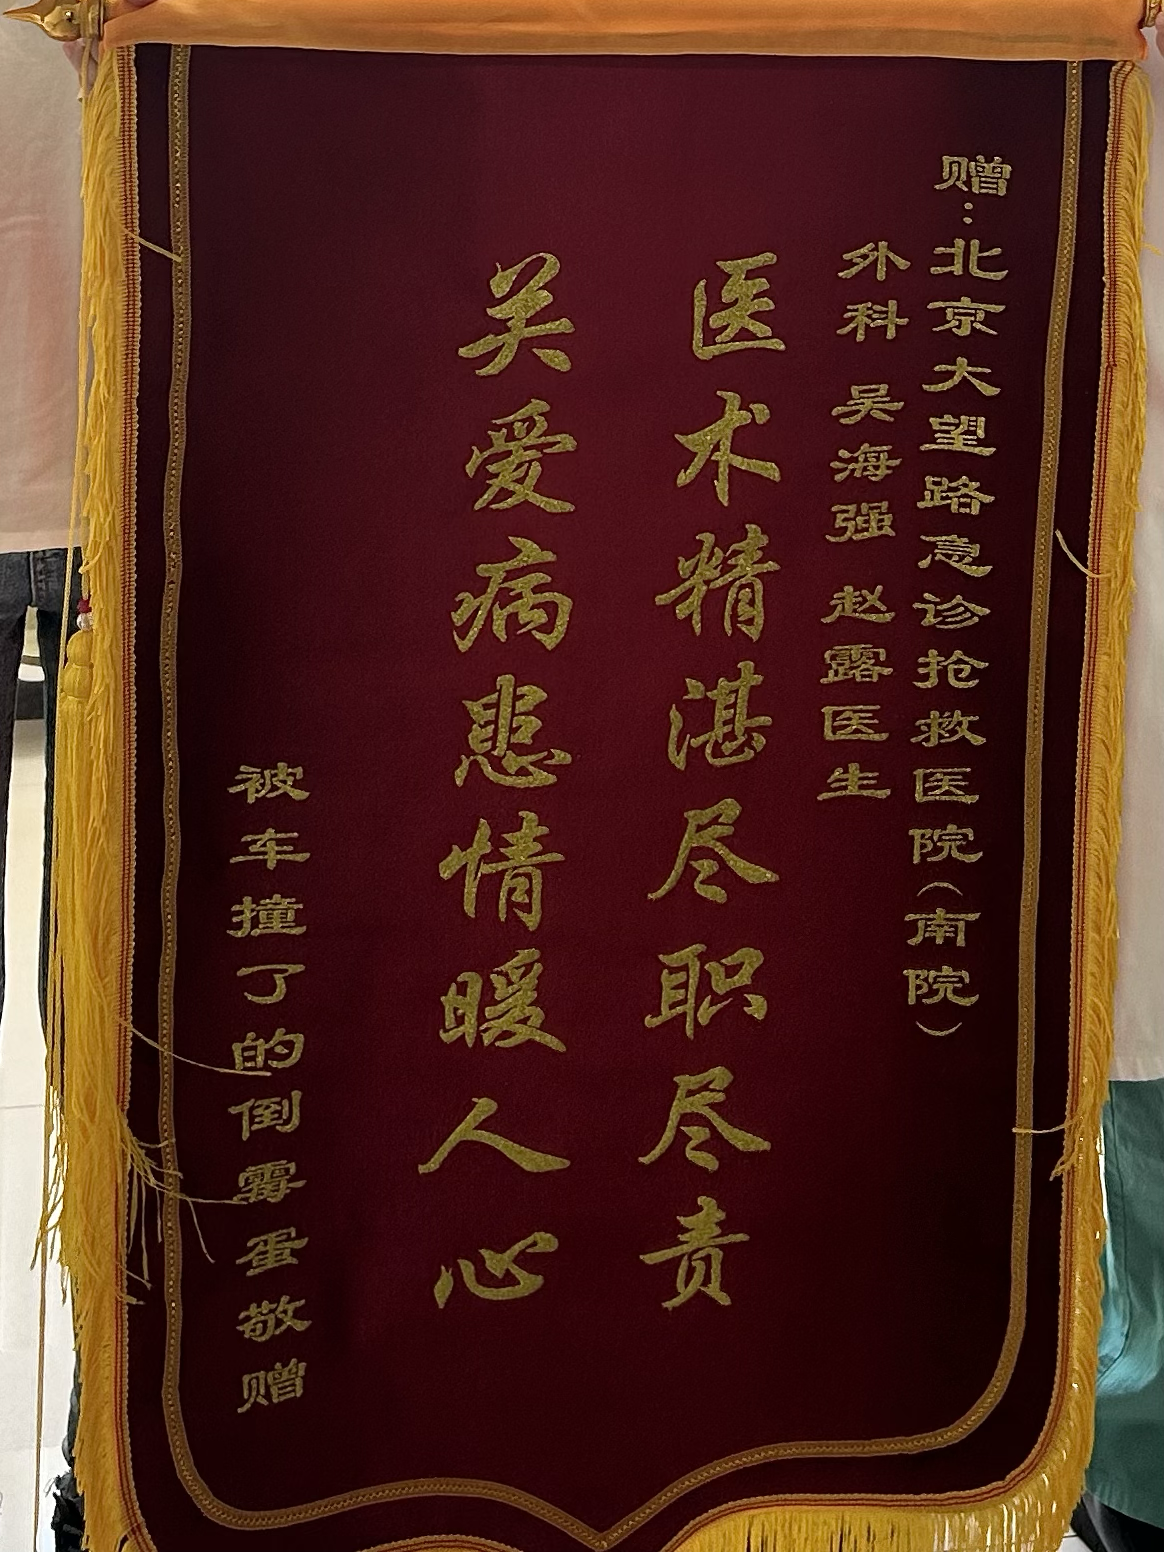 赠：北京大望路急诊抢救医院（南院）
外科 吴海强 赵露医生
医术精湛尽职尽责
关爱病患情暖人心
被车撞了的倒霉蛋敬赠